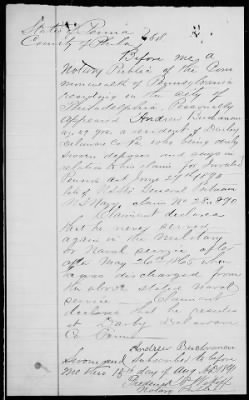 State of Penna
County of Phila } ss
Before me a
Notary Public of the Com
monwealth of Pennsylvania
residing in the city of
Philadelphia. Personally
appeared Andrew Buchanan
a resident of Darby
Delaware Co Pa who being duly
sworn deposes and says in
relation to his claim for Invalid
Pension Act June 27th 1890
late of
U S Navy, claim No 28.890
Claimant declares
that he never served
again in the Military
or Naval service after
after May 26th 1865 when
he was discharged from
the above stated naval
service — Claimant
declares that he resides
at Darby Delaware
Co Penna
Andrew Buchanan
Sworn and subscribed to before
me this 15th day of Aug AD 1891
Notary Public